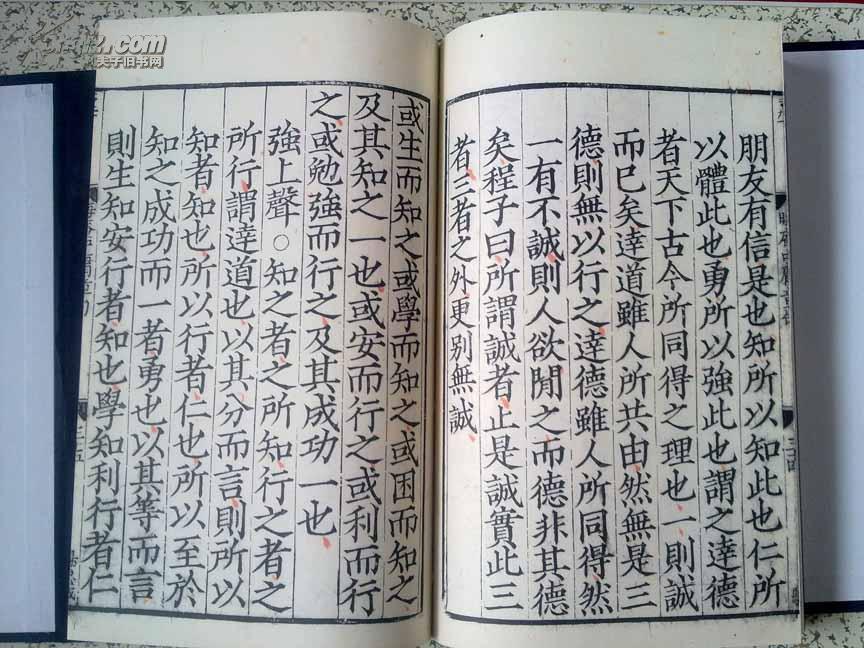 朋友有信是也知所以知此也仁所
以體此也勇所以強此也謂之達德
者天下古今所同得之理也一則誠
而已矣達道雖人所共由然無是三
德則無以行之達德雖人所同得然
一有不誠則人欲閒之而德非其德
矣程子曰所謂誠者止是誠實此三
者三者之外更別無誠
或生而知之或學而知之或困而知之
及其知之一也或安而行之或利而行
之或勉強而行之及其成功一也
強上聲○知之者之所知行之者之
所行謂達道也以其分而言則所以
知者知也所以行者仁也所以至於
知之成功而一者勇也以其等而言
則生知安行者知也學知利行者仁
三四
三五
天子旧书网